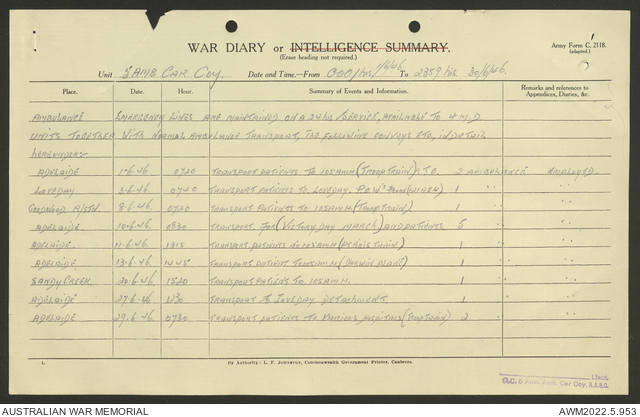 1
WAR DIARY or INTELLIGENCE SUMMARY.
(Erase heading not required.)
Army Form C. 2118.
(adapted.)
Unit Car Coy. Date and Time—From 0001 hrs 1/6/46 To 2359 hrs 30/6/46.
Place Date Hour Summary of Events and Information. Remarks and references to Appendices, Diaries, &c.
AMBULANCE EMERGENCY LINES ARE MAINTAINED ON A 24 hrs SERVICE, AVAILABLE TO 4 M.D
UNITS TOGETHER WITH NORMAL AMBULANCE TRANSPORT, THE FOLLOWING CONVOYS ETC, IN DETAIL
HEREUNDER:-
ADELAIDE 1-6-46 0720 TRANSPORT PATIENTS TO 105 AMH (TROOPTRAIN) R.T.O. 2 AMBULANCES EMPLOYED
LOVEDAY 3-6-46 0740 TRANSPORT PATIENTS TO LOVEDAY. P.O.W'S 1 "
GOODWOOD 8-6-46 0720 TRANSPORT PATIENTS TO 105 AMH (TROOPTRAIN) 1 "
ADELAIDE. 10-6-46 0830 TRANSPORT FOR (VICTORY DAY MARCH) AND PATIENTS 5 "
ADELAIDE. 11-6-46 1315 TRANSPORT PATIENTS TO 105 AMH (TRAIN) 1 "
ADELAIDE 13-6-46 1445 TRANSPORT PATIENT TO 105 AMH (DARWIN PLANE) 1 "
SANDY CREEK. 20-6-46 1520 TRANSPORT PATIENT TO 105 AMH. 1 "
ADELAIDE 27-6-46 1230 TRANSPORT TO LOVEDAY DETACHMENT. 1 "
ADELAIDE 29-6-46 0730 TRANSPORT PATIENTS TO VARIOUS HOSPITALS 2 "
By Authority: L. F. Johnston, Commonwealth Government Printer, Canberra.
Lieut.
O.C. Aust. Amb. Car Coy. A.A.S.C.
AUSTRALIAN WAR MEMORIAL
AWM2022.5.953